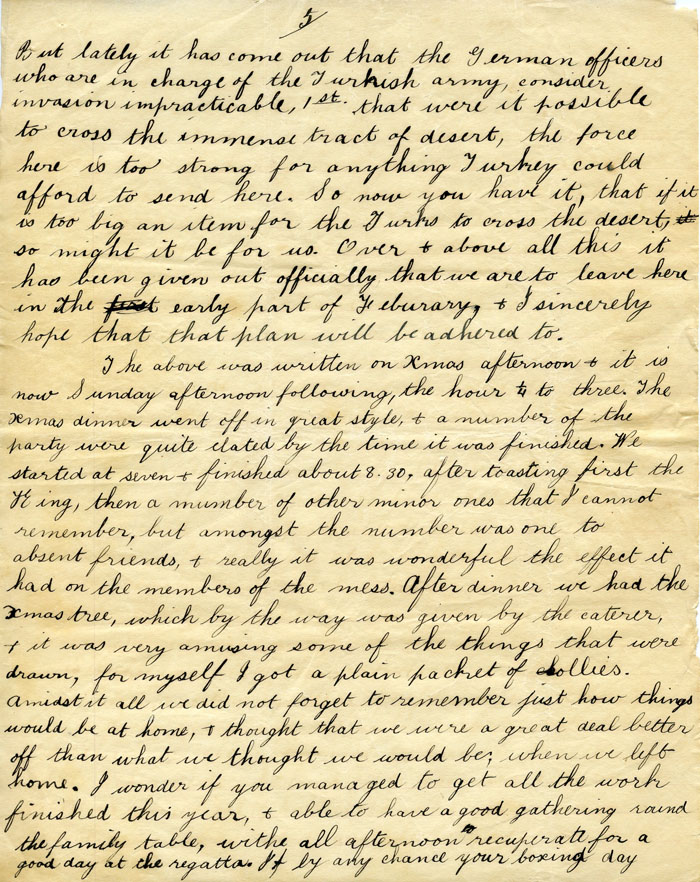 5/
But lately it has come out that the German officers
who are in charge of the Turkish army, consider
invasion impracticable, 1st. that were it possible
to cross the immense tract of desert, the force
here is too strong for anything Turkey could
afford to send here. So now you have it, that if it
is too big an item for the Turks to cross the desert, it
so might it be for us. Over & above all this it
has been given out officially that we are to leave here
in the first early part of Feburary, & I sincerely
hope that that plan will be adhered to.
The above was written on Xmas afternoon & it is
now Sunday afternoon following, the hour ¼ to three. The
Xmas dinner went off in great style, & a number of the
party were quite elated by the time it was finished. We
started at seven & finished about 8.30, after toasting first the
King, then a number of other minor ones that I cannot
remember, but amongst the number was one to
absent friends, & really it was wonderful the effect it
had on the members of the mess. After dinner we had the
Xmas tree, which by the way was given by the caterer,
& it was very amusing some of the things that were
drawn, for myself I got a plain packet of lollies.
Amidst it all we did not forget to remember just how things
would be at home, & thought that we were a great deal better
off than what we thought we would be, when we left
home. I wonder if you managed to get all the work
finished this year, & able to have a good gathering round
the family table, withe all afternoon to recuperate for a
good day at the regatta. If by any chance your boxing day